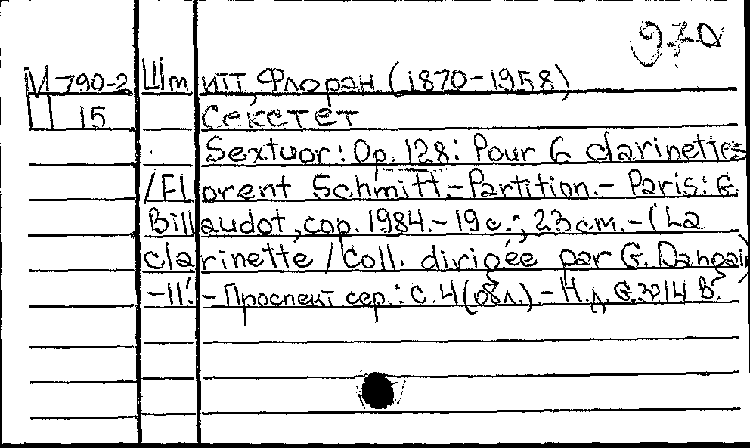 970
И 790-2 Шмитт, Флоран (1870-1958)
П 15 Секстет
Sextuor: Op. 128: Pour 6 clarinettes
/Florent Schmitt.-Partition.- Paris: G.
Billaudot, cop. 1984.-19 с.; 23 см.-(La
clarinette /Coll. dirigée par G. Dangain
-11.- Проспект сер.: с. 4 (обл.)-Н. д. G. 3214 B.